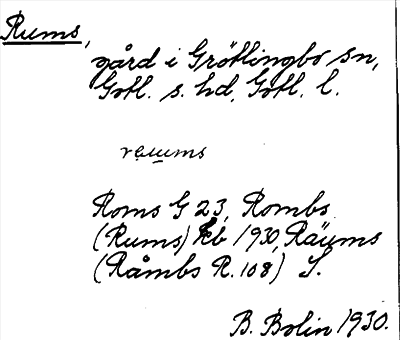 Rums,
gård i Grötlingbo sn,
Gotl. s. hd, Gotl. l.
Roms G 23, Rombs
(Rums) kb 1930, Räums
(Råmbs R. 108) S.
B. Bolin 1930.